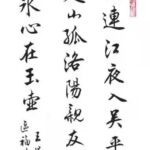 連江夜入吳平
山孤洛陽親友
氷心在玉壺
王